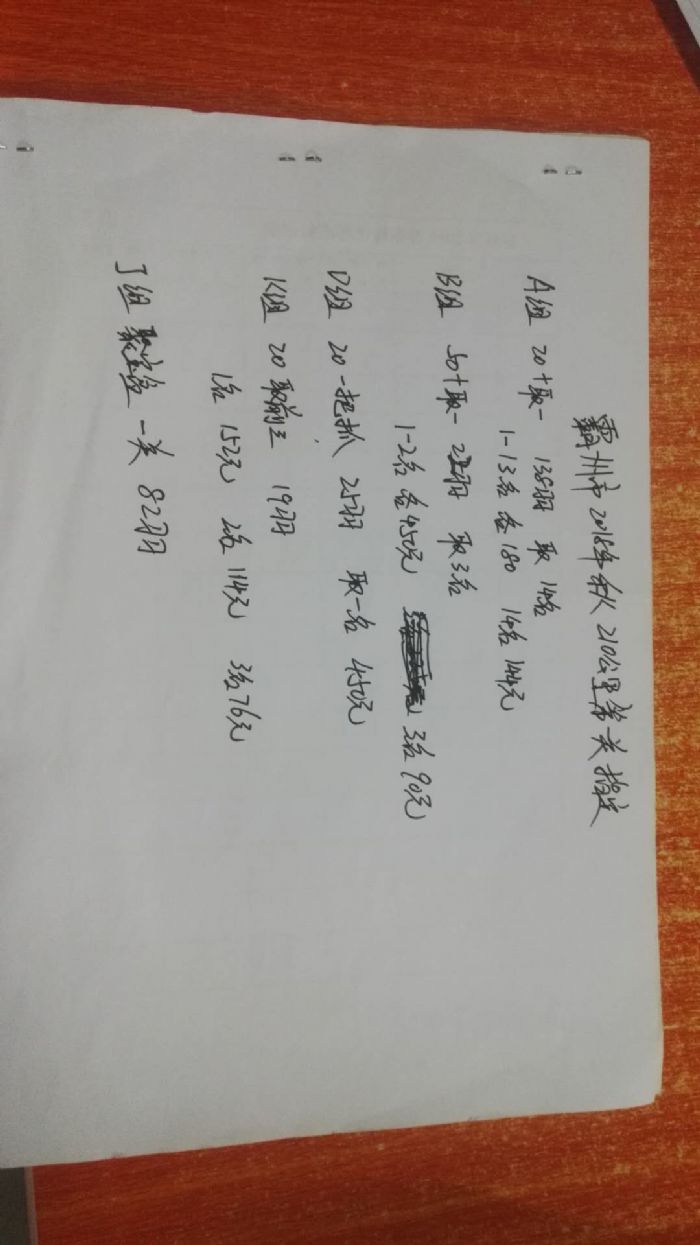 霸州市2018年秋210公里第一关指定
A组 20+取一 138羽 取14名
1-13名各180 14名144元
B组 50+取一 羽 取3名
1-2名各450元 3名90元
D组 20一把抓 25羽 取一名 450元
K组 20取前三 19羽
1名 152元 2名 114元 3名76元
J组 一关 82羽